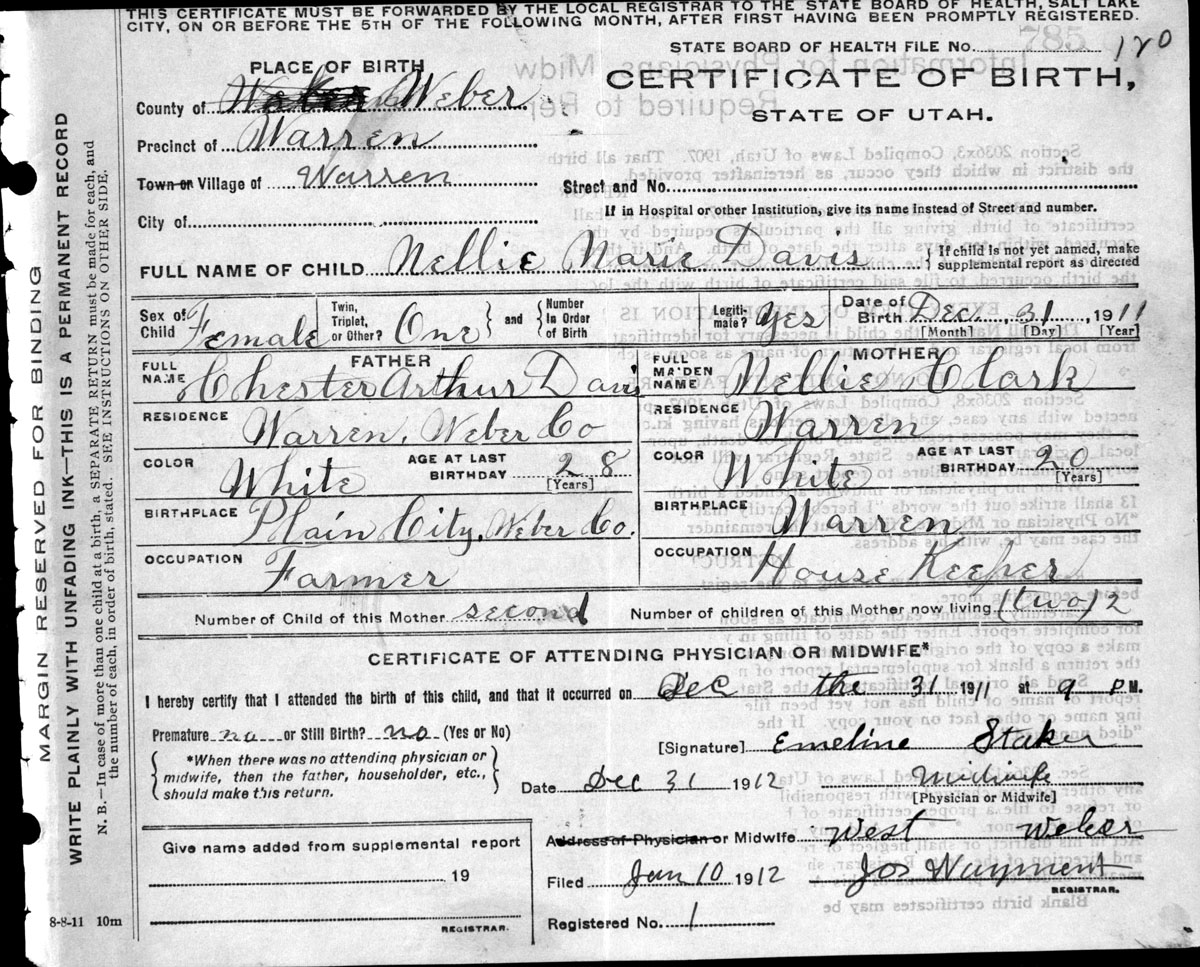 THIS CERTIFICATE MUST BE FORWARDED BY THE LOCAL REGISTRAR TO THE STATE BOARD OF HEALTH, SALT LAKE
CITY, ON OR BEFORE THE 5TH OF THE FOLLOWING MONTH, AFTER FIRST HAVING BEEN PROMPTLY REGISTERED.
STATE BOARD OF HEALTH FILE No. 785 120
PLACE OF BIRTH
CERTIFICATE OF BIRTH,
STATE OF UTAH.
County of Weber
Precinct of Warren
Town or Village of Warren
Street and No.
City of
If in Hospital or other Institution, give its name instead of Street and number.
FULL NAME OF CHILD Nellie Marie Davis { If child is not yet named, make supplemental report as directed
Sex of Child Female Twin, Triplet, or Other? One } and { Number in Order of Birth Legiti-mate? yes Date of Birth Dec 31, 1911
[Month] [Day] [Year]
FATHER
FULL NAME Chester Arthur Davis
RESIDENCE Warren, Weber Co
COLOR White AGE AT LAST BIRTHDAY 28 [Years]
BIRTHPLACE Plain City, Weber Co.
OCCUPATION Farmer
MOTHER
FULL MAIDEN NAME Nellie Clark
RESIDENCE Warren
COLOR White AGE AT LAST BIRTHDAY 20 [Years]
BIRTHPLACE Warren
OCCUPATION House Keeper
Number of Child of this Mother second Number of children of this Mother now living (two) 2
CERTIFICATE OF ATTENDING PHYSICIAN OR MIDWIFE*
I hereby certify that I attended the birth of this child, and that it occurred on Dec the 31 1911 at 9 P M.
Premature no or Still Birth? no (Yes or No)
{ *When there was no attending physician or midwife, then the father, householder, etc., should make this return. }
[Signature] Emeline Staker
Date Dec 31 1912 Midwife
[Physician or Midwife]
Address of Physician or Midwife West Weber
Filed Jan 10 1912 Jos Wayment
REGISTRAR.
Registered No. 1
Give name added from supplemental report
19
REGISTRAR.
8-8-11 10m
MARGIN RESERVED FOR BINDING
WRITE PLAINLY WITH UNFADING INK—THIS IS A PERMANENT RECORD
N. B.—In case of more than one child at birth, a SEPARATE RETURN must be made for each, and
the number of each, in order of birth, stated. SEE INSTRUCTIONS ON OTHER SIDE.